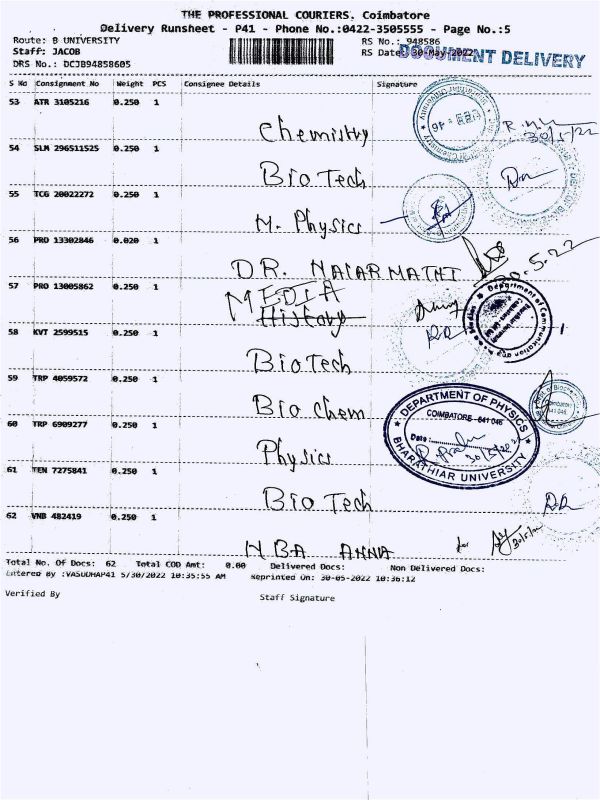 THE PROFESSIONAL COURIERS, Coimbatore
Delivery Runsheet - P41 - Phone No.:0422-3505555 - Page No.:5
Route: B UNIVERSITY
RS No.: 948586
Staff: JACOB
RS Date: 30-May-2022
DOCUMENT DELIVERY
DRS No.: DCJB94858605
S No Consignment No Weight PCS Consignee Details Signature
53 ATR 3105216 0.250 1
Chemistry
30/5/22
54 SLM 296511525 0.250 1
Bio Tech
55 TCG 20022272 0.250 1
M. Physics
56 PRO 13302846 0.020 1
DR. NAIARMATHI
30.5.22
57 PRO 13005862 0.250 1
MEDIA
History
Department of Communication and Media Studies
58 KVT 2599515 0.250 1
Bio Tech
59 TRP 4059572 0.250 1
Bio chem
60 TRP 6909277 0.250 1
Physics
DEPARTMENT OF PHYSICS
COIMBATORE - 641 046
Date:
BHARATHIAR UNIVERSITY
61 TEN 7275841 0.250 1
Bio Tech
62 VNB 482419 0.250 1
NBA ANNA
for
Total No. Of Docs: 62 Total COD Amt: 0.00 Delivered Docs: Non Delivered Docs:
Entered By :VASUDHAP41 5/30/2022 10:35:55 AM Reprinted On: 30-05-2022 10:36:12
Verified By
Staff Signature